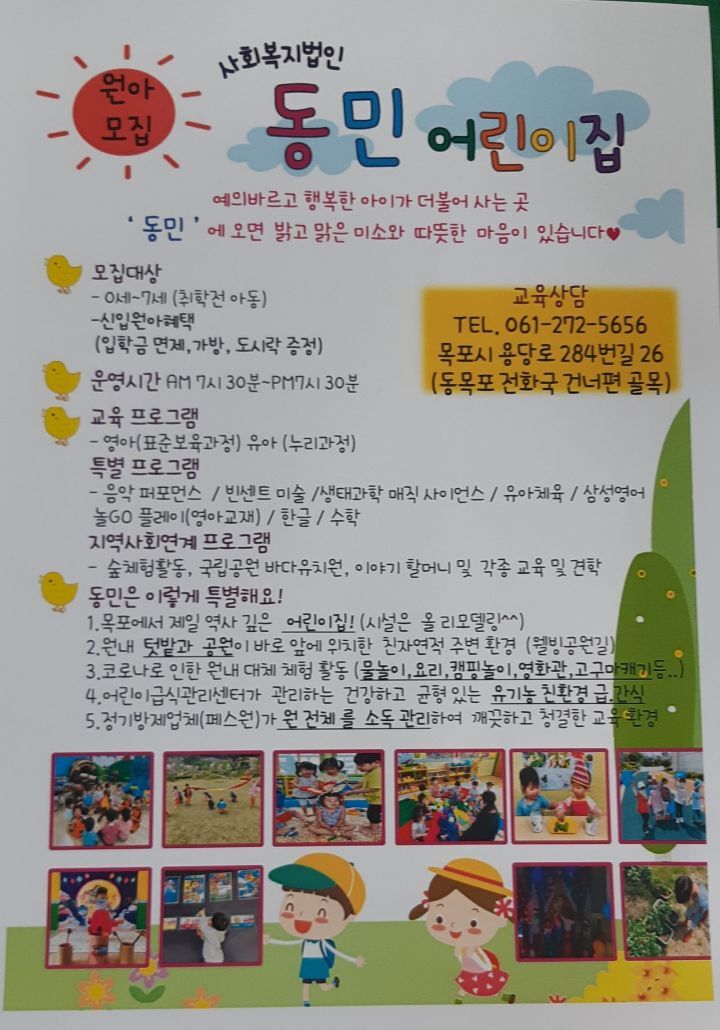 원아
모집
사회복지법인
동민 어린이집
예의바르고 행복한 아이가 더불어 사는 곳
‘ 동민 ’ 에 오면 밝고 맑은 미소와 따뜻한 마음이 있습니다♥
모집대상
- 0세~7세 (취학전 아동)
-신입원아혜택
(입학금 면제,가방, 도시락 증정)
교육상담
TEL. 061-272-5656
목포시 용당로 284번길 26
(동목포 전화국 건너편 골목)
운영시간 AM 7시 30분~PM7시 30분
교육 프로그램
- 영아(표준보육과정) 유아 (누리과정)
특별 프로그램
- 음악 퍼포먼스 / 빈센트 미술 /생태과학 매직 사이언스 / 유아체육 / 삼성영어
놀GO 플레이(영아교재) / 한글 / 수학
지역사회연계 프로그램
- 숲체험활동, 국립공원 바다유치원, 이야기 할머니 및 각종 교육 및 견학
동민은 이렇게 특별해요!
1.목포에서 제일 역사 깊은 어린이집! (시설은 올 리모델링^^)
2.원내 텃밭과 공원이 바로 앞에 위치한 친자연적 주변 환경 (웰빙공원길)
3.코로나로 인한 원내 대체 체험 활동 (물놀이,요리,캠핑놀이,영화관,고구마캐기등..)
4.어린이급식관리센터가 관리하는 건강하고 균형 있는 유기농 친환경 급.간식
5.정기방제업체(페스원)가 원 전체 를 소독 관리하여 깨끗하고 청결한 교육 환경